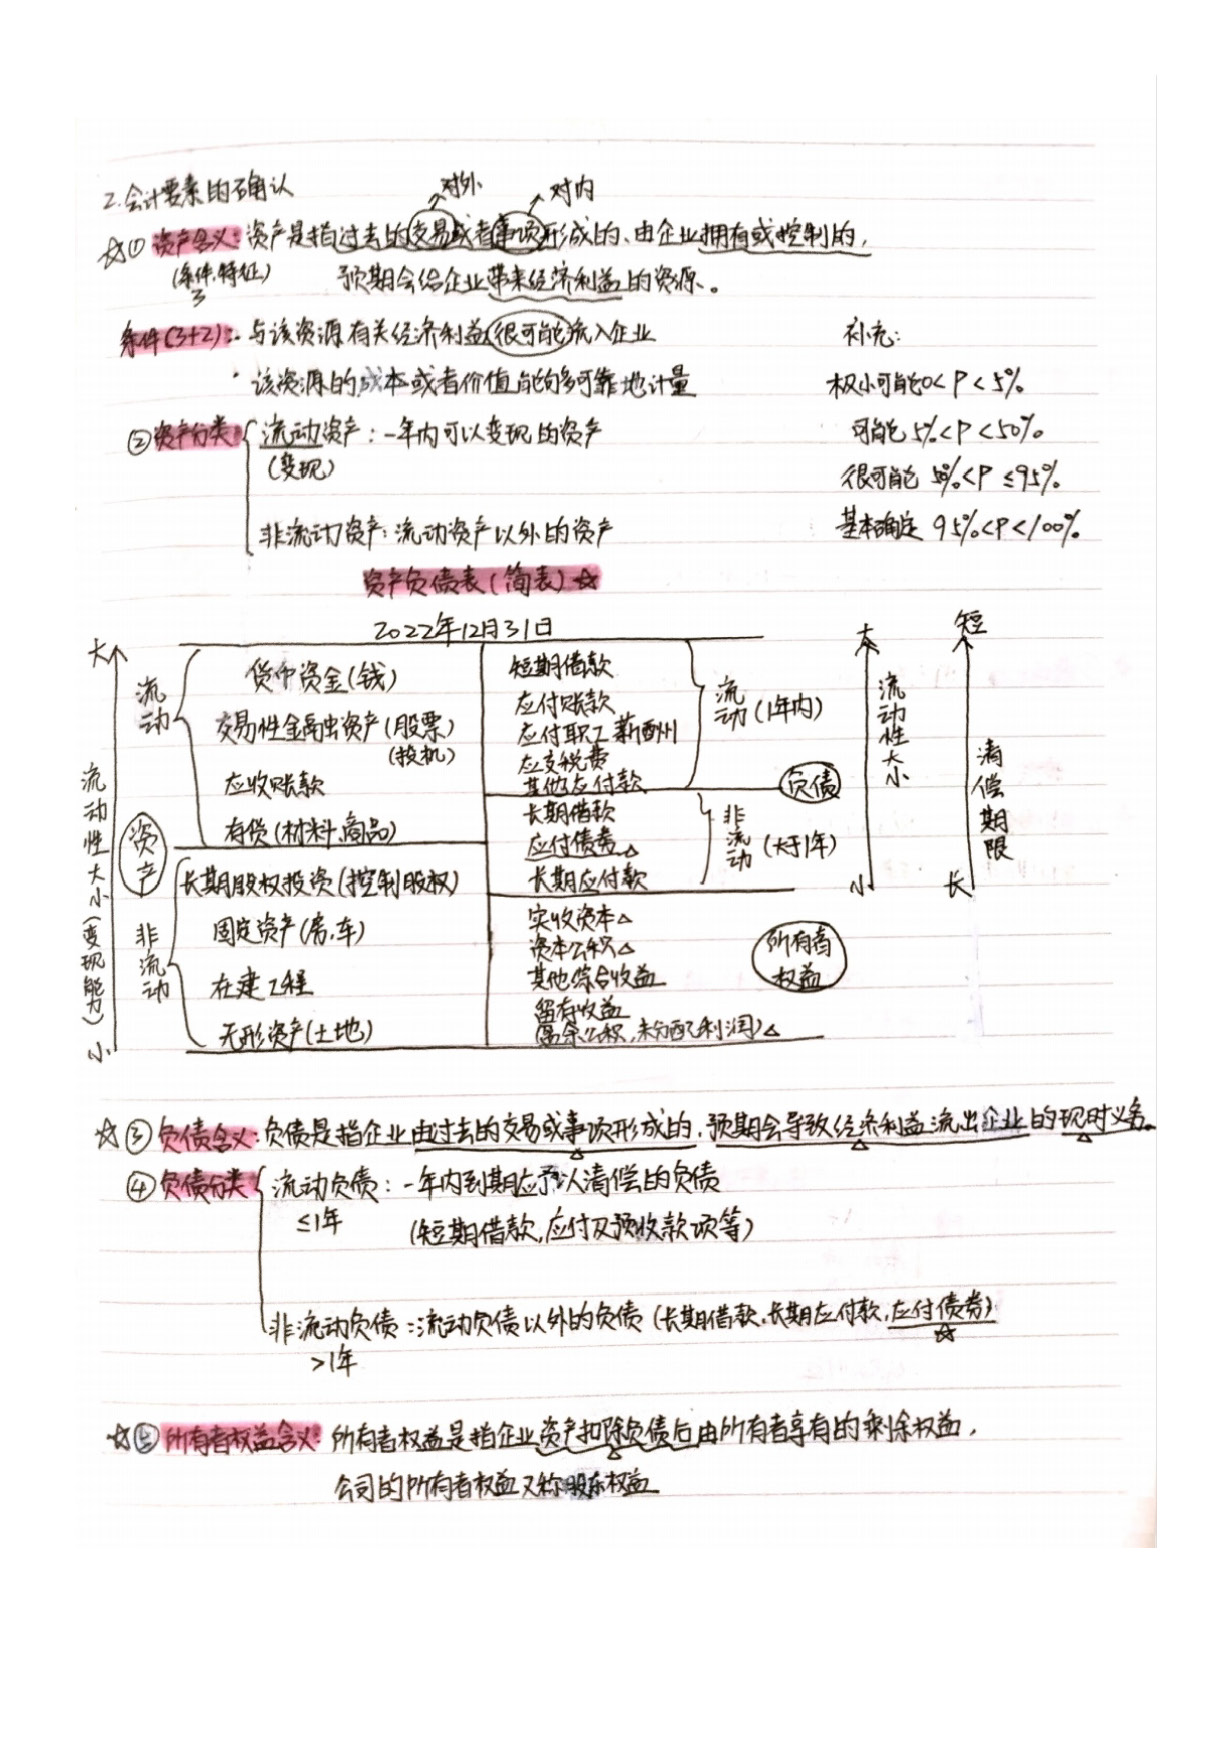 2.会计要素的确认
对外
对内
☆① 资产含义:资产是指过去的交易或者事项形成的、由企业拥有或控制的,
(条件.特征)
3
预期会给企业带来经济利益的资源。
条件(3+2):·与该资源有关经济利益很可能流入企业
补充:
·该资源的成本或者价值能够可靠地计量
极小可能0<P<5%
②资产分类
流动资产:一年内可以变现的资产
(变现)
可能5%<P<50%
很可能 50%<P≤95%
非流动资产:流动资产以外的资产
基本确定 95%<P<100%
资产负债表(简表)☆
2022年12月31日
大
流动
货币资金(钱)
交易性金融资产(股票)
(投机)
应收账款
存货(材料.商品)
流动性大小(变现能力)
资产
非流动
长期股权投资(控制股权)
固定资产(房,车)
在建工程
无形资产(土地)
小
短期借款
应付账款
应付职工薪酬州
应交税费
其他应付款
流动(1年内)
负债
长期借款
应付债券△
长期应付款
非流动(大于1年)
实收资本△
资本公积△
其他综合收益
留存收益
(盈余公积,未分配利润)△
所有者
权益
大
流动性大小
小
短
清偿期限
长
☆③负债含义:负债是指企业由过去的交易或事项形成的,预期会导致经济利益流出企业的现时义务。
④负债分类
流动负债:一年内到期应予以清偿的负债
≤1年
(短期借款,应付及预收款项等)
非流动负债:流动负债以外的负债(长期借款.长期应付款,应付债券)
☆
>1年
☆⑤所有者权益含义:所有者权益是指企业资产扣除负债后由所有者享有的剩余权益,
公司的所有者权益又称股东权益